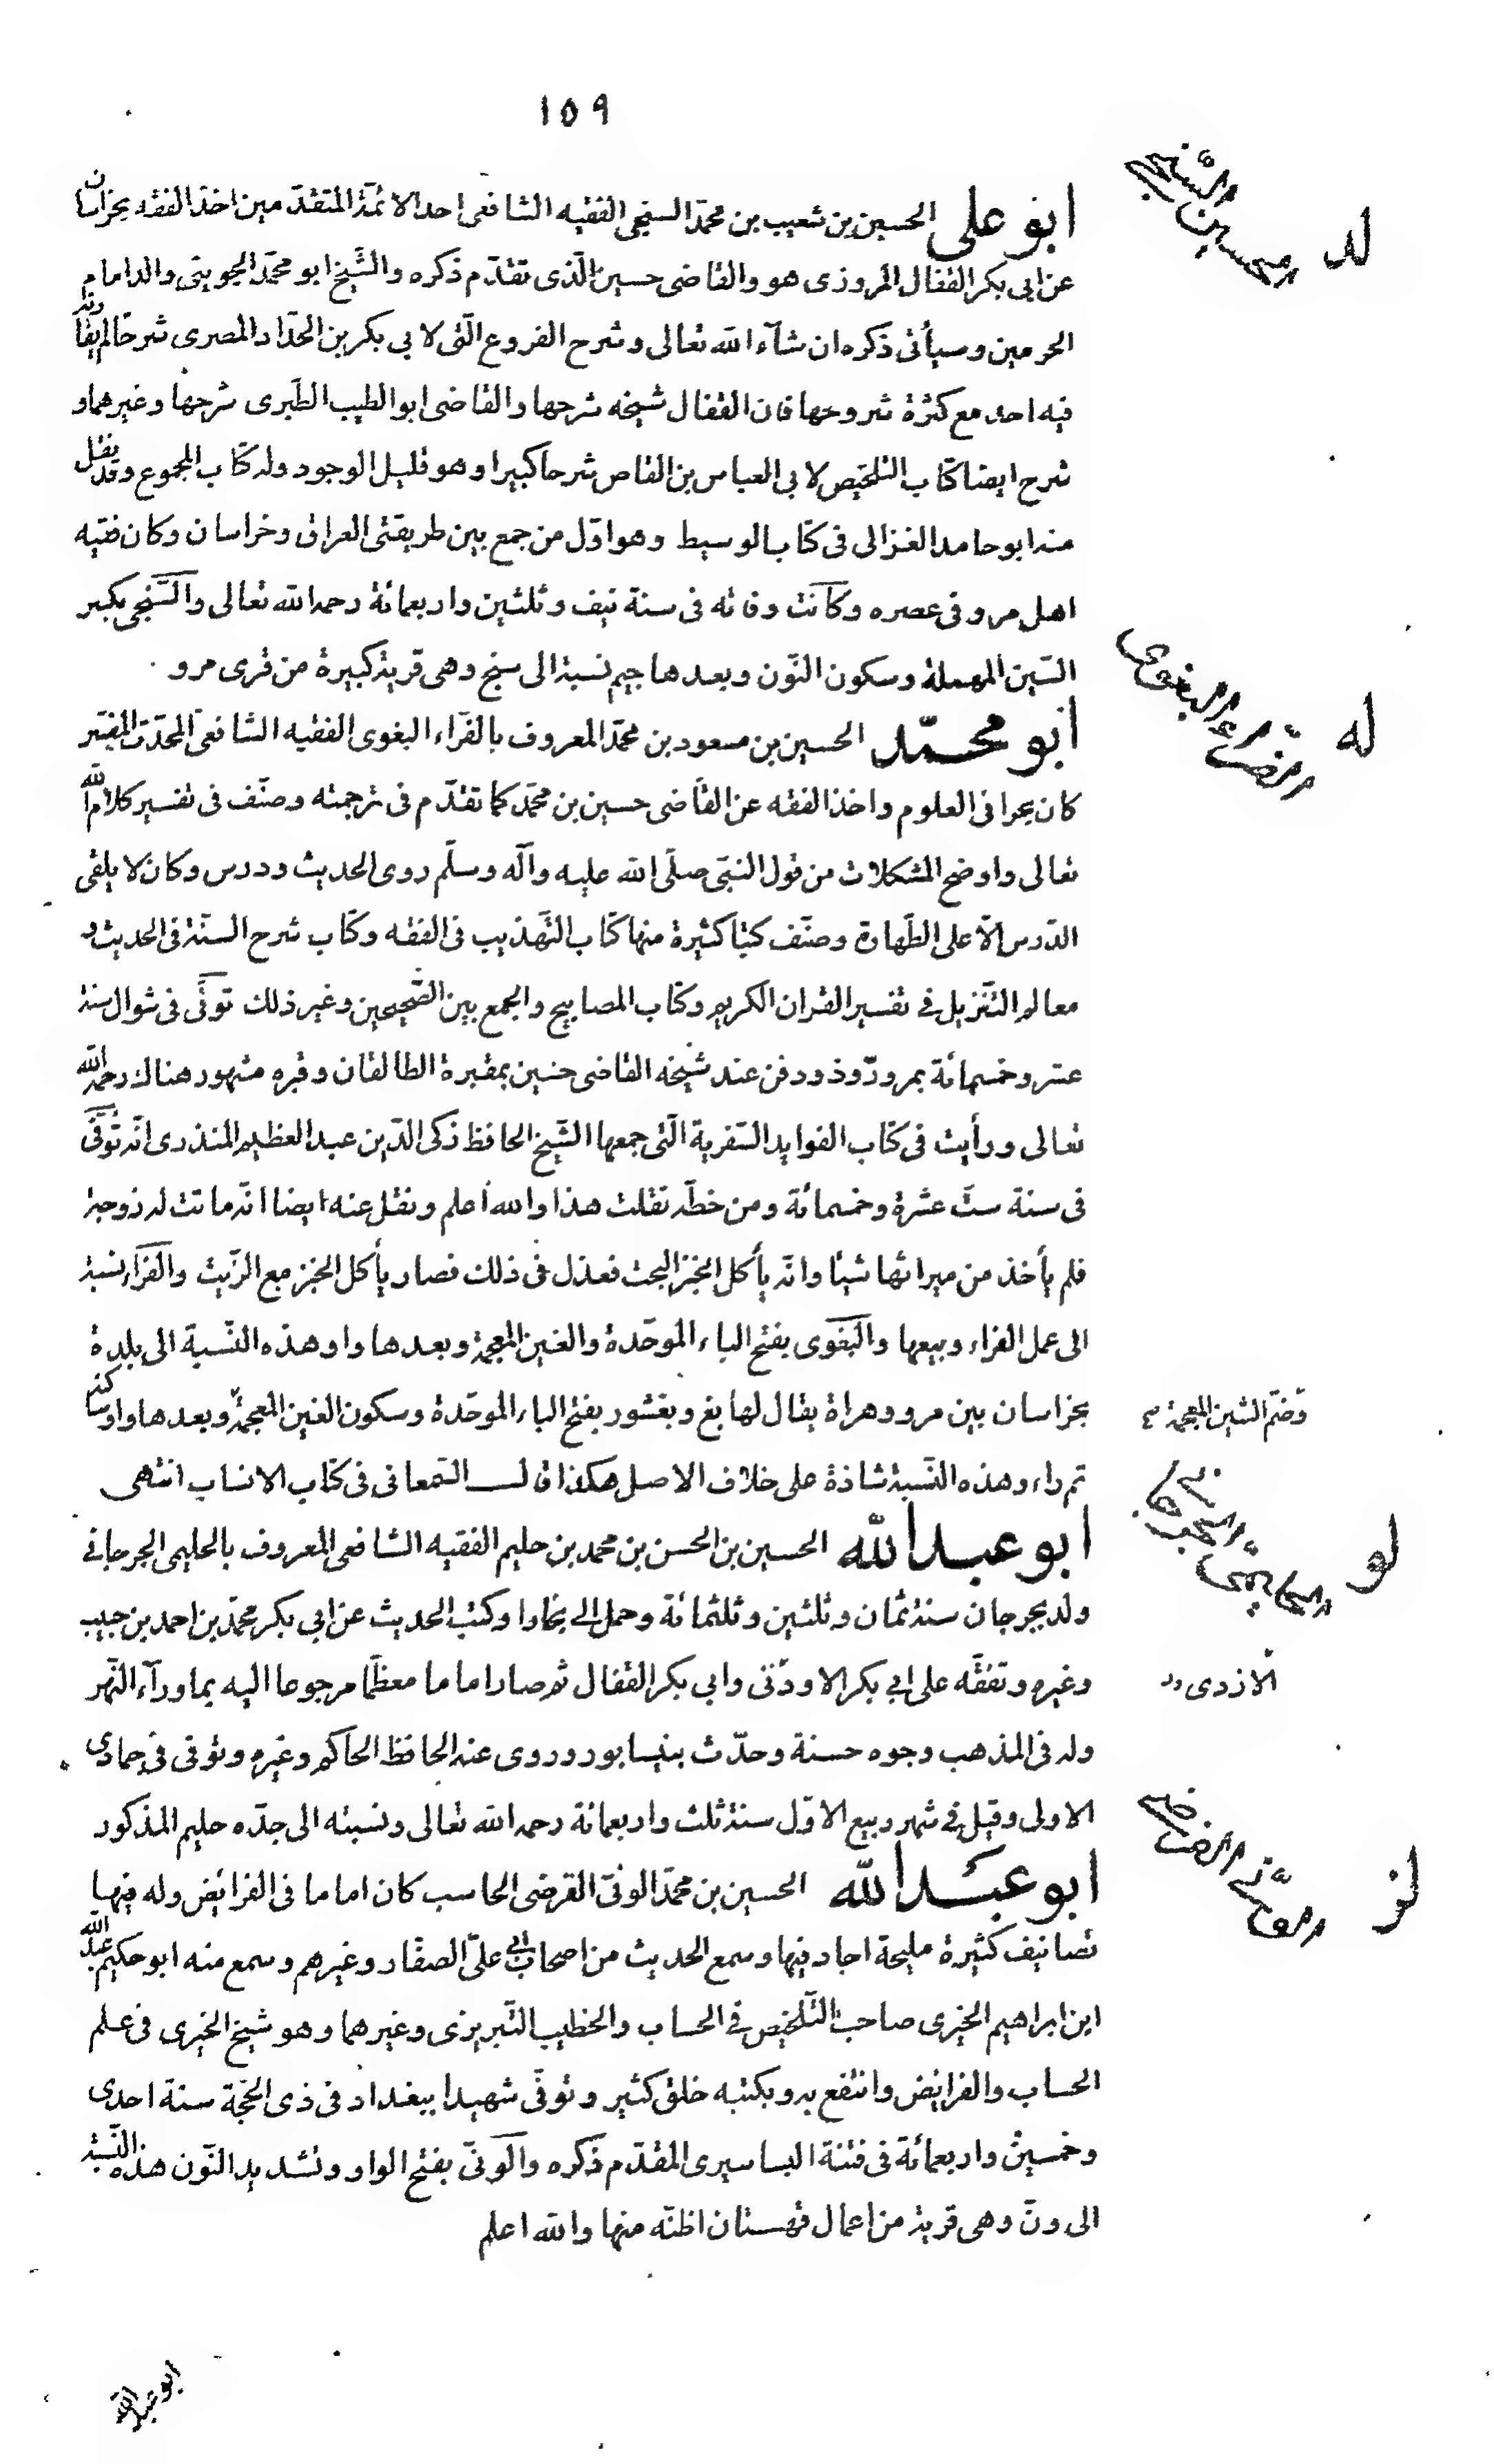 ١٥٩
ابو على الحسين بن شعيب بن محمّد السنجى الفقيه الشافعى احد الائمّة المتقدّمين اخذ الفقه بخراسان
عن ابى بكر القفال المروزى هو والقاضى حسين الّذى تقدّم ذكره والشّيخ ابو محمّد الجوينى والد امام
الحرمين وسيأتى ذكره ان شآء الله تعالى وشرح الفروع الّتى لابى بكر بن الحدّاد المصرى شرحا لم يقاربه
فيه احد مع كثرة شروحها فان القفال شيخه شرحها والقاضى ابو الطيب الطّبرى شرحها وغيرهما و
شرح ايضا كتاب التلخيص لابى العباس بن القاص شرحا كبيرا وهو قليل الوجود وله كتاب المجموع وقد نقل
منه ابو حامد الغزالى فى كتاب الوسيط وهو اوّل من جمع بين طريقتى العراق وخراسان وكان فقيه
اهل مرو فى عصره وكانت وفاته فى سنة نيف وثلثين واربعمائة رحمه الله تعالى والسّنجى بكسر
السّين المهملة وسكون النّون وبعدها جيم نسبة الى سنج وهى قرية كبيرة من قرى مرو
ابو محمّد الحسين بن مسعود بن محمّد المعروف بالفرّاء البغوى الفقيه الشافعىّ المحدّث المفسّر
كان بحرا فى العلوم واخذ الفقه عن القاضى حسين بن محمّد كما تقدّم فى ترجمته وصنّف فى تفسير كلام الله
تعالى واوضح المشكلات من قول النبىّ صلّى الله عليه وآله وسلّم روى الحديث ودرس وكان لا يلقى
الدّرس الّا على الطّهارة وصنّف كتبا كثيرة منها كتاب التّهذيب فى الفقه وكتاب شرح السنّة فى الحديث و
معالم التّنزيل فى تفسير القران الكريم وكتاب المصابيح والجمع بين الصّحيحين وغير ذلك توفّى فى شوال سنة
عشر وخمسمائة بمرورّوذ ودفن عند شيخه القاضى حسين بمقبرة الطالقان وقبره مشهور هناك رحمه الله
تعالى ورأيت فى كتاب الفوايد السّفرية الّتى جمعها الشّيخ الحافظ زكى الدّين عبد العظيم المنذرى انّه توفّى
فى سنة ستّ عشرة وخمسمائة ومن خطّه نقلت هذا والله اعلم ونقل عنه ايضا انّه ماتت له زوجة
فلم يأخذ من ميراثها شيئا وانّه يأكل الخبز البحت فعذل فى ذلك فصار يأكل الخبز مع الزّيت والفرّاء نسبة
الى عمل الفراء وبيعها والبغوى بفتح الباء الموحّدة والغين المعجمة وبعدها واو هذه النّسبة الى بلدة
بخراسان بين مرو وهراة يقال لها بغ وبغشور بفتح الباء الموحّدة وسكون الغين المعجمة وبعدها واو ساكنة
وضمّ الشين المعجمة
ثم راء وهذه النّسبة شاذة على خلاف الاصل هكذا قال السّمعانى فى كتاب الانساب انتهى
ابو عبد الله الحسين بن الحسن بن محمد بن حليم الفقيه الشافعى المعروف بالحليمى الجرجانى
ولد بجرجان سنة ثمان وثلثين وثلثمائة وحمل الى بخارا وكتب الحديث عن ابى بكر محمّد بن احمد بن حبيب
وغيره وتفقّه على ابى بكر الاودنى وابى بكر القفال ثم صار اماما معظّما مرجوعا اليه بماورآء النّهر
الازدى
وله فى المذهب وجوه حسنة وحدّث بنيسابور وروى عنه الحافظ الحاكم وغيره وتوفى فى جمادى
الاولى وقيل فى شهر ربيع الاوّل سنة ثلث واربعمائة رحمه الله تعالى ونسبته الى جدّه حليم المذكور
ابو عبد الله الحسين بن محمّد الونّى الفرضى الحاسب كان اماما فى الفرائض وله فيها
تصانيف كثيرة مليحة اجاد فيها وسمع الحديث من اصحاب ابى علىّ الصفّار وغيرهم وسمع منه ابو حكيم عبد الله
ابن ابراهيم الخبرى صاحب التّلخيص فى الحساب والخطيب التّبريزى وغيرهما وهو شيخ الخبرى فى علم
الحساب والفرايض وانتفع به وبكتبه خلق كثير وتوفّى شهيدا ببغداد فى ذى الحجّة سنة احدى
وخمسين واربعمائة فى فتنة البساسيرى المقدّم ذكره والونّى بفتح الواو وتشديد النّون هذه النّسبة
الى ونّ وهى قرية من اعمال قهستان اظنّه منها والله اعلم
لد
حسين السّنجى
له
الفرّاء البغوى
لو
الحليمى الجرجانى
لز
الونّى الفرضى
ابو عبد الله